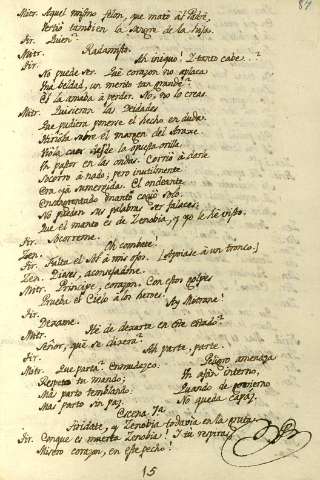 87
Mitr. Aquel mismo felon, que mató al Padre,
Vertió tambien la sangre de la hija.
Tir. Quien?
Mitr. Radamisto.
Tir. Ah iniquo! Y tanto cabe..?
No puede ser. Qué corazon no aplaca
Una beldad, un merito tan grande?
El la amaba à perder. No, no lo creas.
Mitr. Quisieran las Deidades
Que pudiera ponerse el hecho en duda.
Herirla sobre el margen del Araxe
Viola caer desde la opuesta orilla
Un pastor en las ondas. Corrió à darle
Socorro à nado; pero inutilmente
Era ya sumergida. El ondeante
Ensangrentado manto cogió solo.
No pueden sus palabras ser falaces;
Que el manto es de Zenobia, y yo lo hé visto.
Tir. Socorreme.
Zen. Oh combate!
Tir. Falta el Sol à mis ojos. [Apoyase à un tronco.]
Zen. Dioses, aconsejadme.
Mitr. Principe, corazon. Con estos golpes
Prueba el Cielo à los heroes.
Tir. Ay Mitrane!
Dexame.
Mitr. Hé de dexarte en este estado?
Señor, qué se dixera?
Tir. Ah parte, parte.
Mitr. Que parta? Enmudezco. Peligro amenaza
Respeto tu mando; Un afan interno,
Mas parto temblando; Quando de govierno
Mas parto sin paz. No queda capaz.
Escena 7a
Tiridate, y Zenobia todavia en la gruta.
Tir. Conque es muerta Zenobia! I tu respiras
Misero corazon, en este pecho!
15